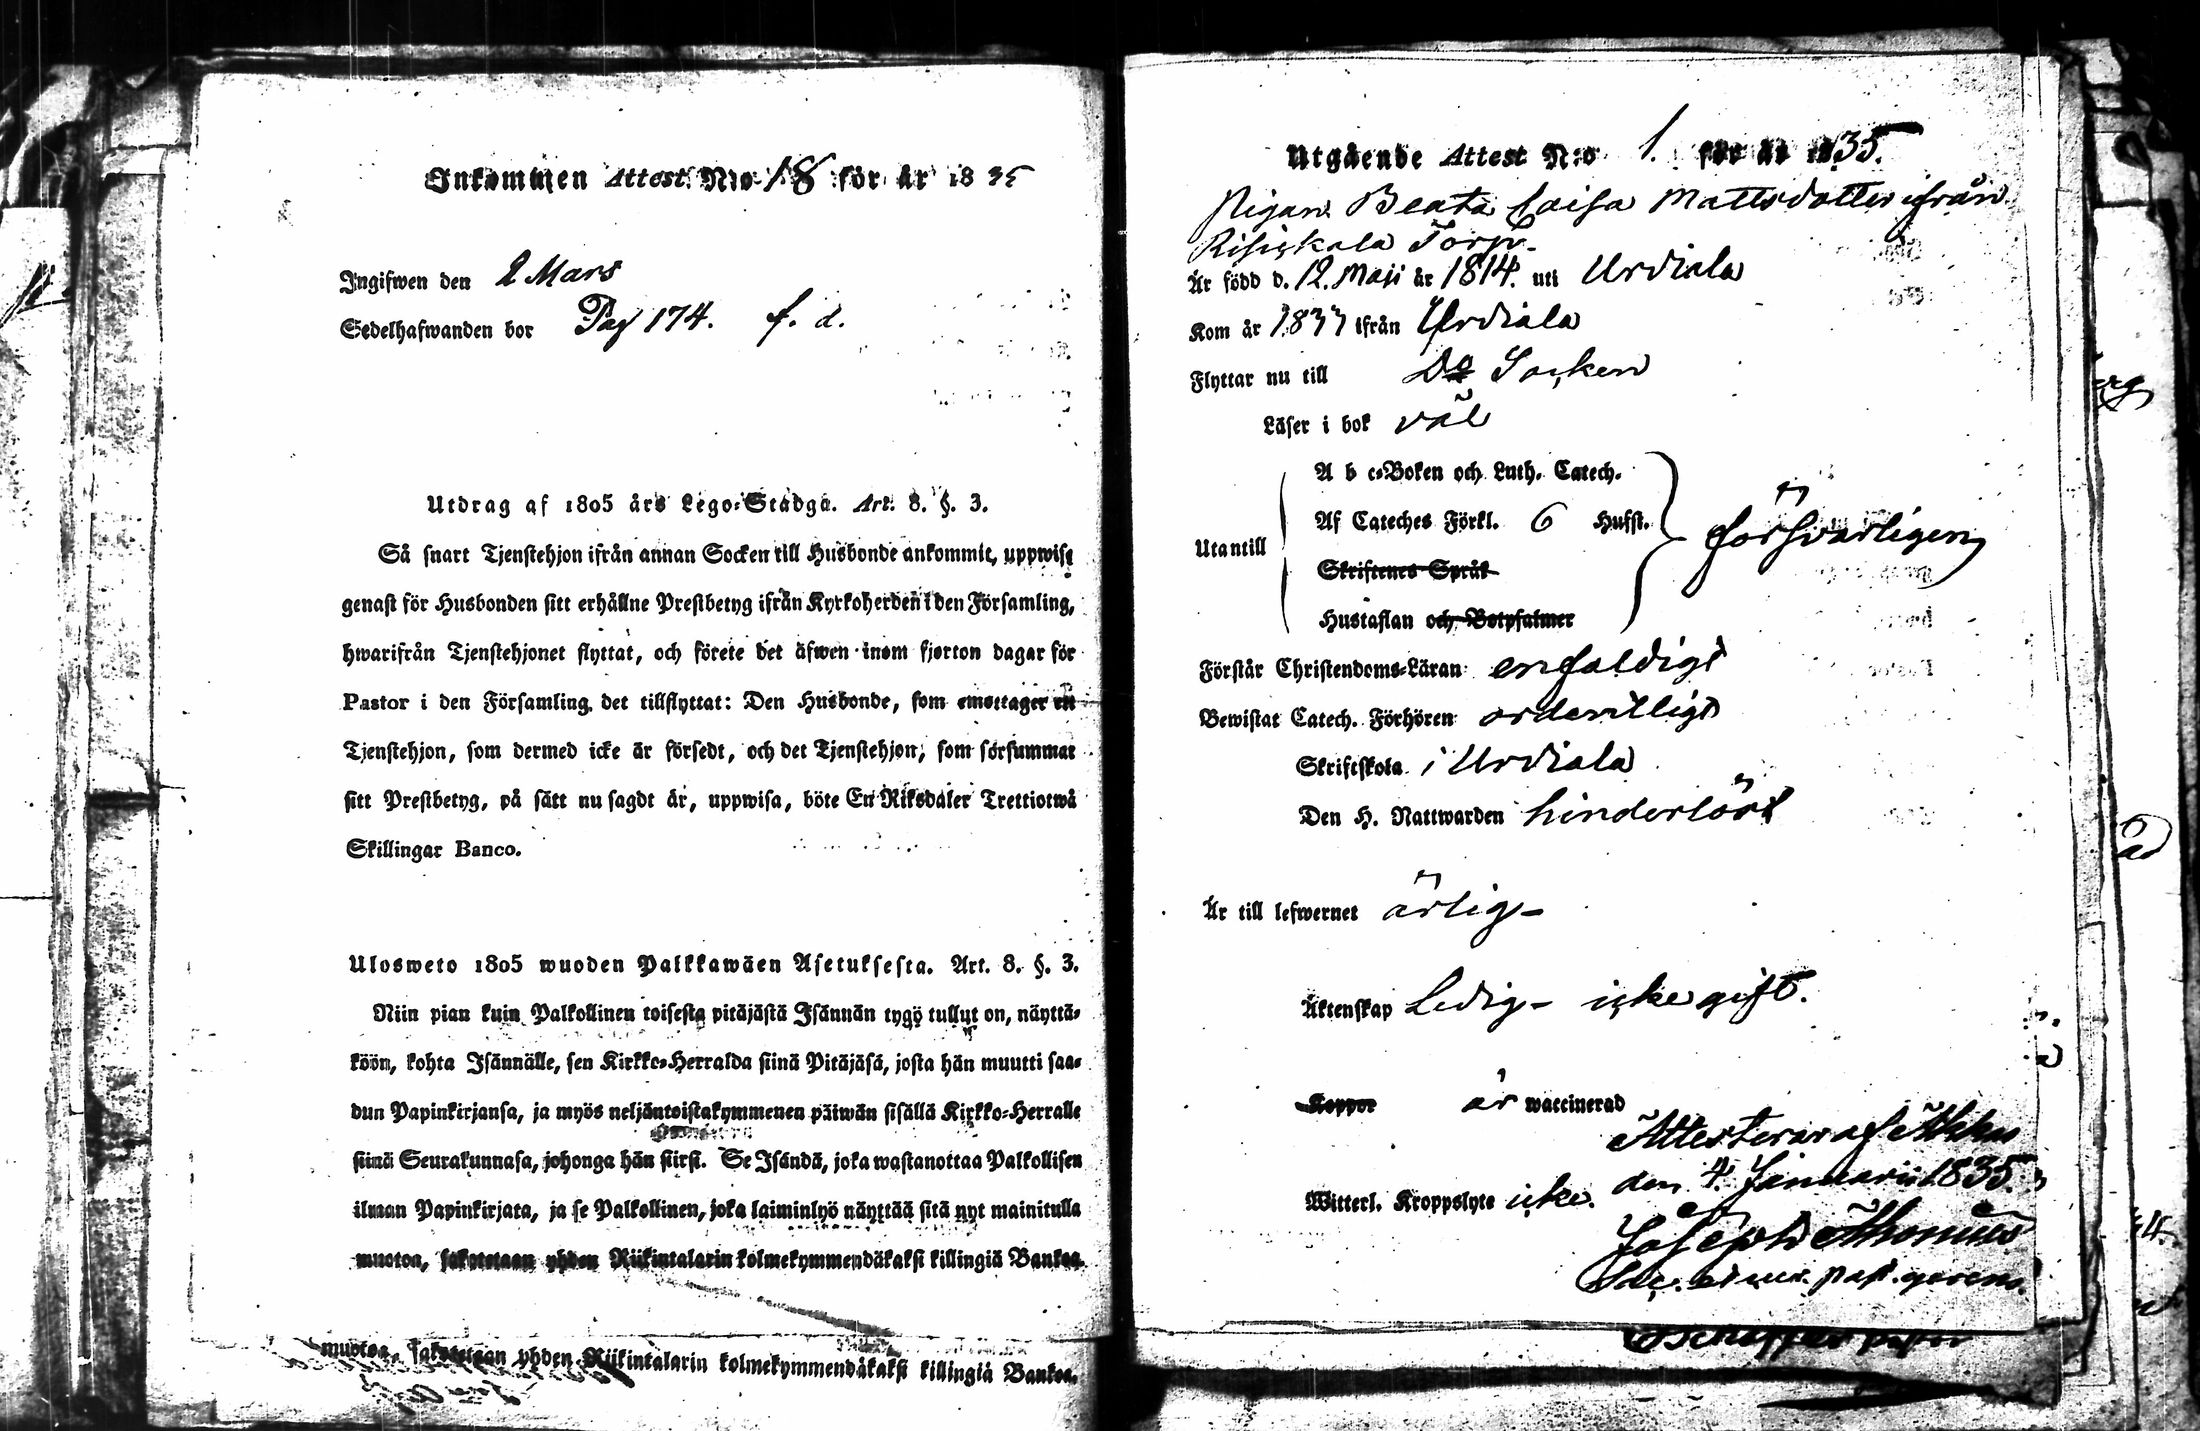 Inkommen Attest N:o 18 för år 1835
Ingifwen den 2 Mars
Sedelhafwanden bor Pag 174. f. d.
Utdrag af 1805 års Lego-Stadga. Art. 8. §. 3.
Så snart Tjenstehjon ifrån annan Socken till Husbonde ankommit, uppwise
genast för Husbonden sitt erhållne Prestbetyg ifrån Kyrkoherden i den Församling,
hwarifrån Tjenstehjonet flyttat, och förete det äfwen inom fjorton dagar för
Pastor i den Församling det tillflyttat: Den Husbonde, som emottager ett
Tjenstehjon, som dermed icke är försedt, och det Tjenstehjon, som försummat
sitt Prestbetyg, på sätt nu sagdt är, uppwisa, böte En Riksdaler Trettiotwå
Skillingar Banco.
Ulosweto 1805 wuoden Palkkawäen Asetuksesta. Art. 8. §. 3.
Niin pian kuin Palkollinen toisesta pitäjästä Isännän tygö tullut on, näyttä-
köön, kohta Isännälle, sen Kirkko-Herralda siinä Pitäjäsä, josta hän muutti saa-
dun Papinkirjansa, ja myös neljäntoistakymmenen päiwän sisällä Kirkko-Herralle
siinä Seurakunnasa, johonga hän siirsi. Se Isändä, joka wastanottaa Palkollisen
ilman Papinkirjata, ja se Palkollinen, joka laiminlyö näyttää sitä nyt mainitulla
muotoa, sakotetaan yhden Riikintalarin kolmekymmendäkaksi killingiä Bankoa.
muotoa, sakotetaan yhden Riikintalarin kolmekymmendäkaksi killingiä Bankoa.
Utgående Attest N:o 1. för år 1835.
Pigan Beata Caisa Mattsdotter ifrån
Torp
Är född d. 12. Maji år 1814. uti Urdiala
Kom år 1833 ifrån Urdiala
Flyttar nu till Do Socken
Läser i bok väl
A b c-Boken och Luth. Catech.
Af Cateches Förkl. 6 Hufst.
Utantill försvarligen
Skriftenes Språk
Hustaflan och Botpsalmer
Förstår Christendoms-Läran enfaldigt
Bewistat Catech. Förhören ordentligt
Skriftskola i Urdiala
Den H. Nattwarden hinderlöst
Är till lefwernet ärlig
Äktenskap Ledig icke gift.
Koppor är waccinerad
Attesterar af Akkas
den 4. Januarii 1835.
Witterl. Kroppslyte icke.
Joseph
past. gerens.
pastor